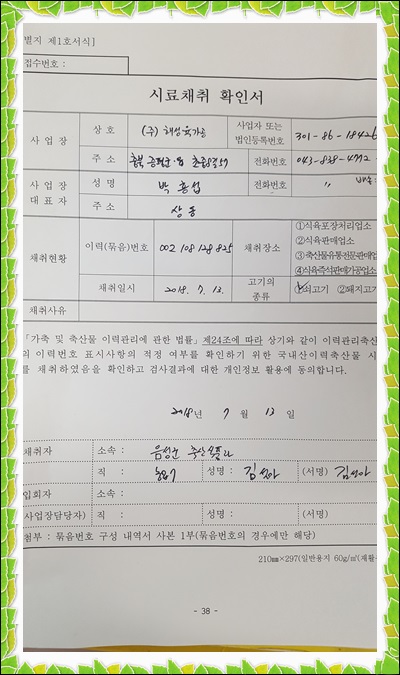 별지 제1호서식]
접수번호 :
시료채취 확인서
사 업 장 상 호 (주) 해성육가공 사업자 또는 법인등록번호 301-86-18426
주 소 충북 전화번호 043-838-4772
사 업 장 대 표 자 성 명 박 홍섭 전화번호 〃
주 소 상 동
채취현황 이력(묶음)번호 002 108 128 825 채취장소 ①식육포장처리업소
②식육판매업소
③축산물유통전문판매업
④식육즉석판매가공업소
채취일시 2018. 7. 13. 고기의 종류 ①쇠고기 ②돼지고기
채취사유
「가축 및 축산물 이력관리에 관한 법률」 제24조에 따라 상기와 같이 이력관리축산
의 이력번호 표시사항의 적정 여부를 확인하기 위한 국내산이력축산물 시
를 채취하였음을 확인하고 검사결과에 대한 개인정보 활용에 동의합니다.
2018년 7 월 13 일
채취자 소속 : 음성군 축산식품과
직 : 성명 : 김선아 (서명) 김선아
입회자 소속 :
(사업장담당자) 직 : 성명 : (서명)
첨부 : 묶음번호 구성 내역서 사본 1부(묶음번호의 경우에만 해당)
210㎜×297(일반용지 60g/㎡(재활
- 38 -